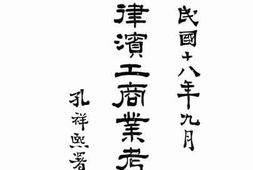 民國十八年九月
律濱工商業考
孔祥熙署